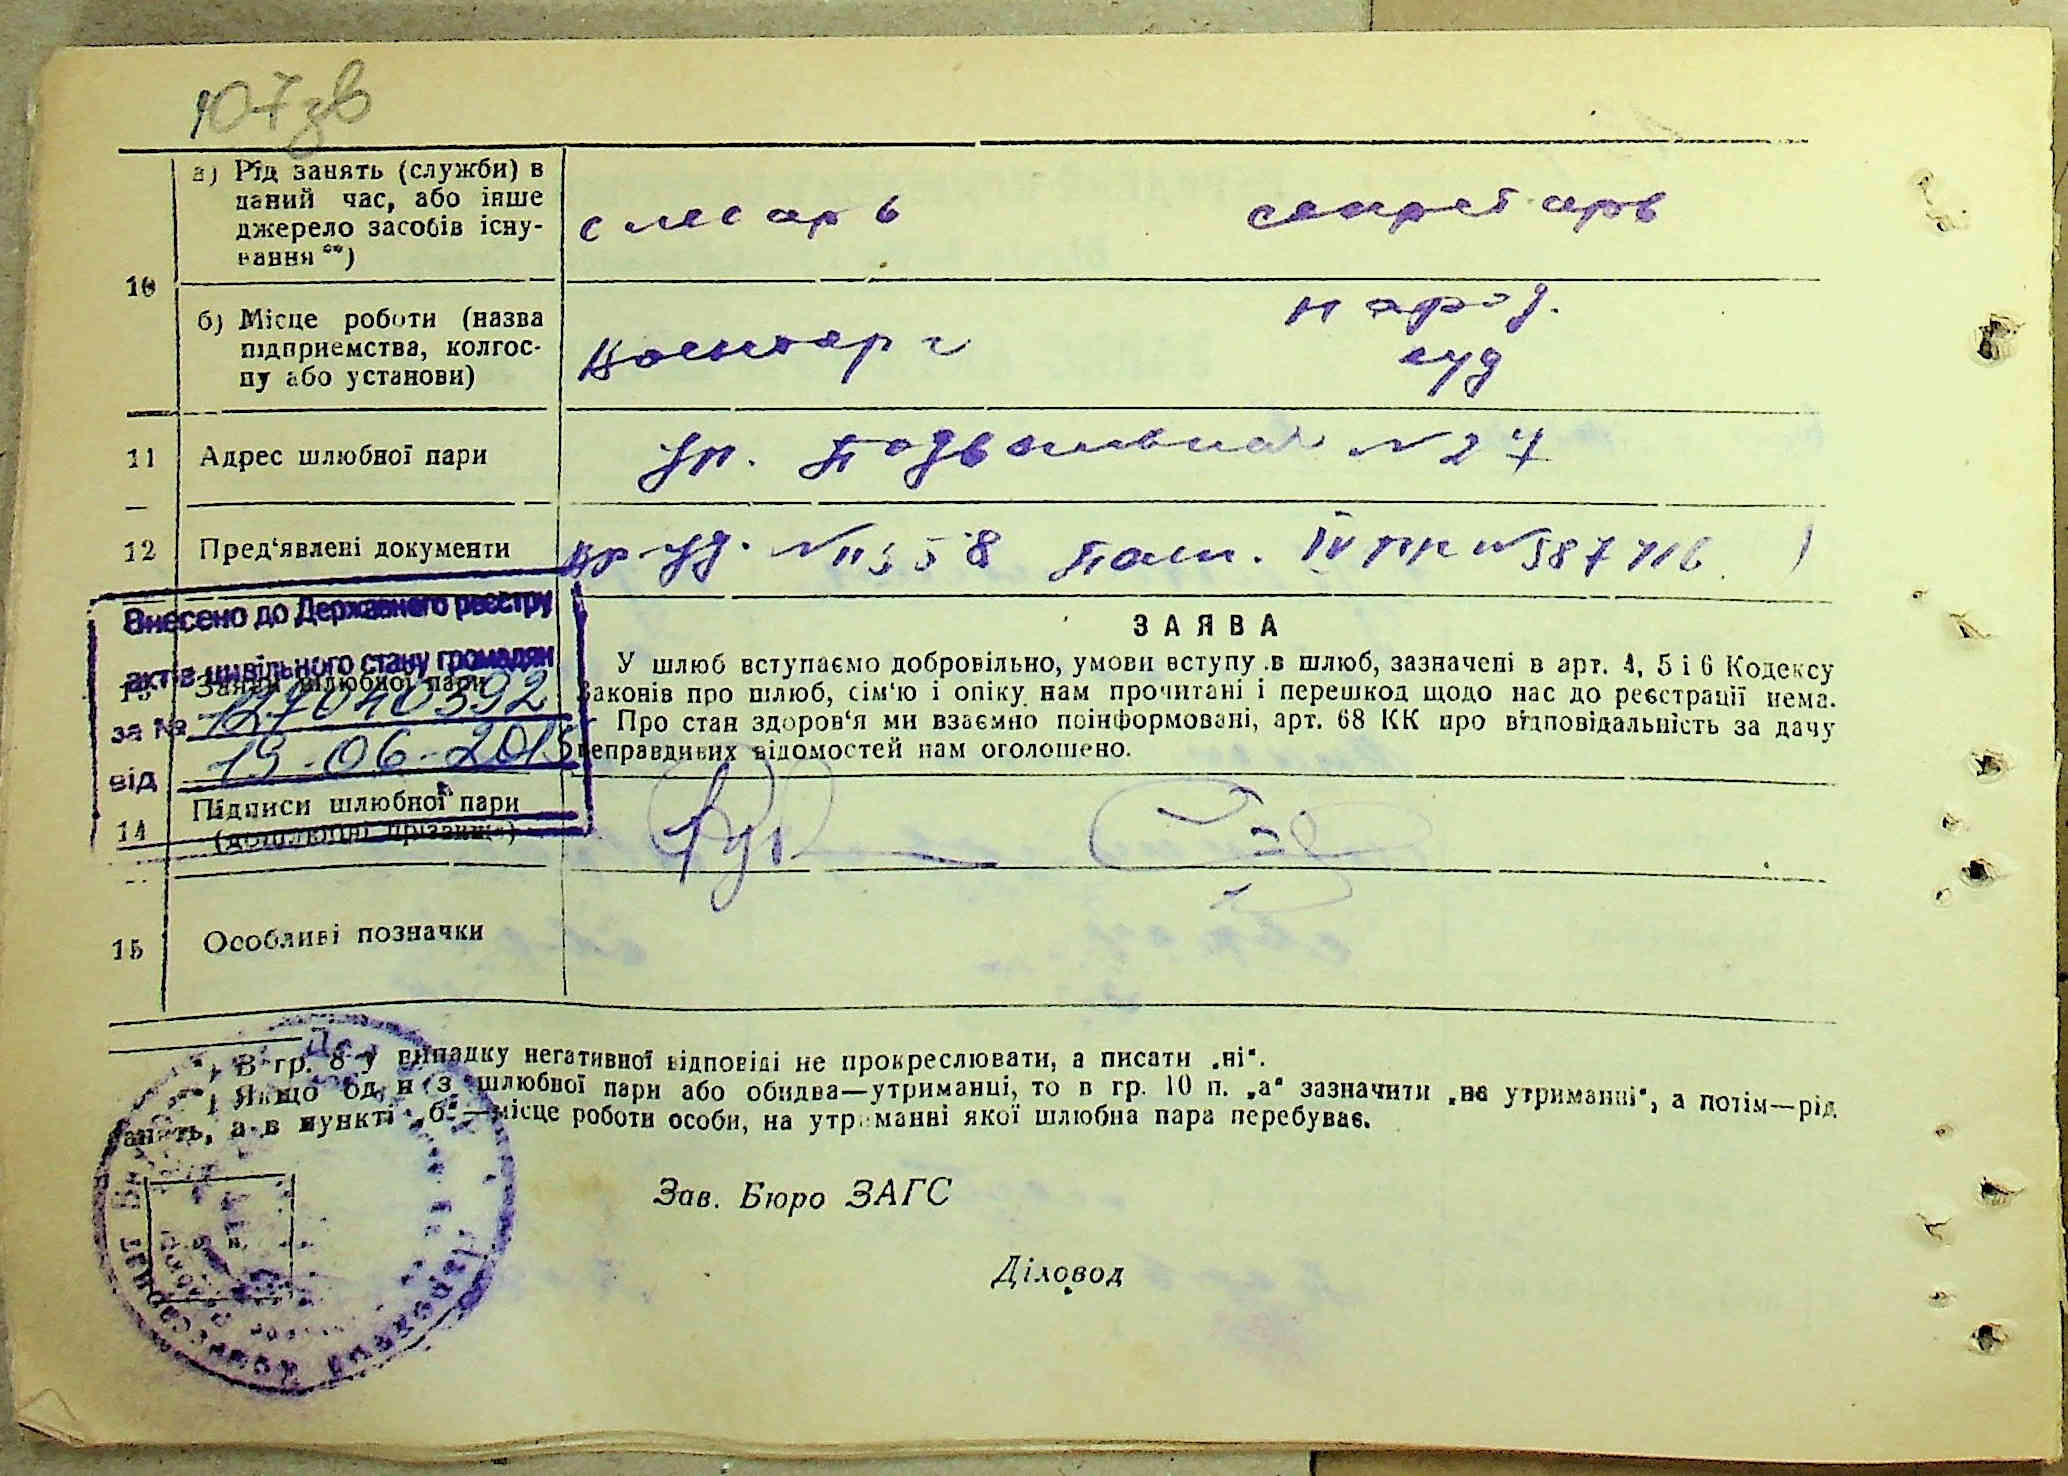 107зв
а) Рід занять (служби) в
даний час, або інше
джерело засобів існу-
вання **)
слесарь секретарь
10
б) Місце роботи (назва
підприемства, колгос-
пу або установи)
Военторг народ.
суд
11 Адрес шлюбної пари
ул. Подвальная №27
12 Пред'явлені документи
вр. уд. № 11358 Пасп. IV ПК № 587716
Внесено до Державного реєстру
актів цивільного стану громадян
за № 127040392
від 19-06-2015
13 Заяви шлюбної пари
ЗАЯВА
У шлюб вступаємо добровільно, умови вступу в шлюб, зазначені в арт. 4, 5 і 6 Кодексу
Законів про шлюб, сім'ю і опіку нам прочитані і перешкод щодо нас до реєстрації нема.
Про стан здоров'я ми взаємно поінформовані, арт. 68 КК про відповідальність за дачу
неправдивих відомостей нам оголошено.
14 Підписи шлюбної пари
(дошлюбні прізвища)
15 Особливі позначки
В гр. 8-у випадку негативної відповіді не прокреслювати, а писати „ні“.
Якщо один з шлюбної пари або обидва—утриманці, то в гр. 10 п. „а“ зазначити „на утриманні“, а потім—рід
занять, а в пункті „б“—місце роботи особи, на утриманні якої шлюбна пара перебуває.
Зав. Бюро ЗАГС
Діловод